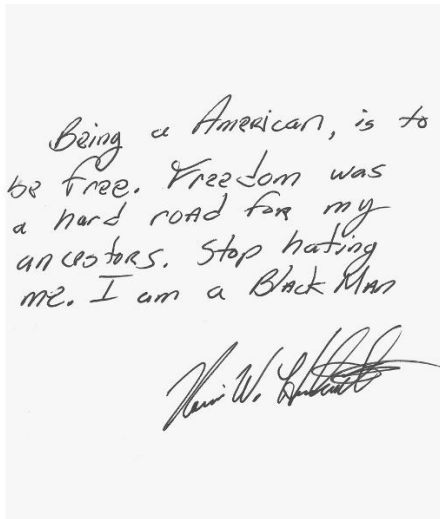 Being a American, is to
be free. Freedom was
a hard road for my
ancestors. Stop hating
me. I am a Black Man
W.